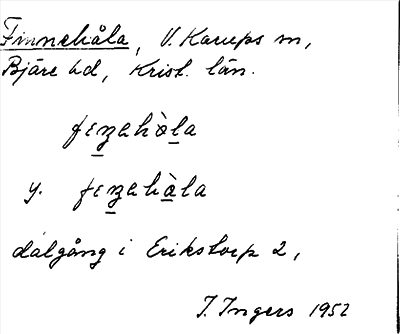 Finnehåla, V. Karups sn,
Bjäre hd, Krist. län.
fɪn̲ahòl̲a
y. fɪn̲ahà̲la
dalgång i Erikstorp 2,
I. Ingers 1952